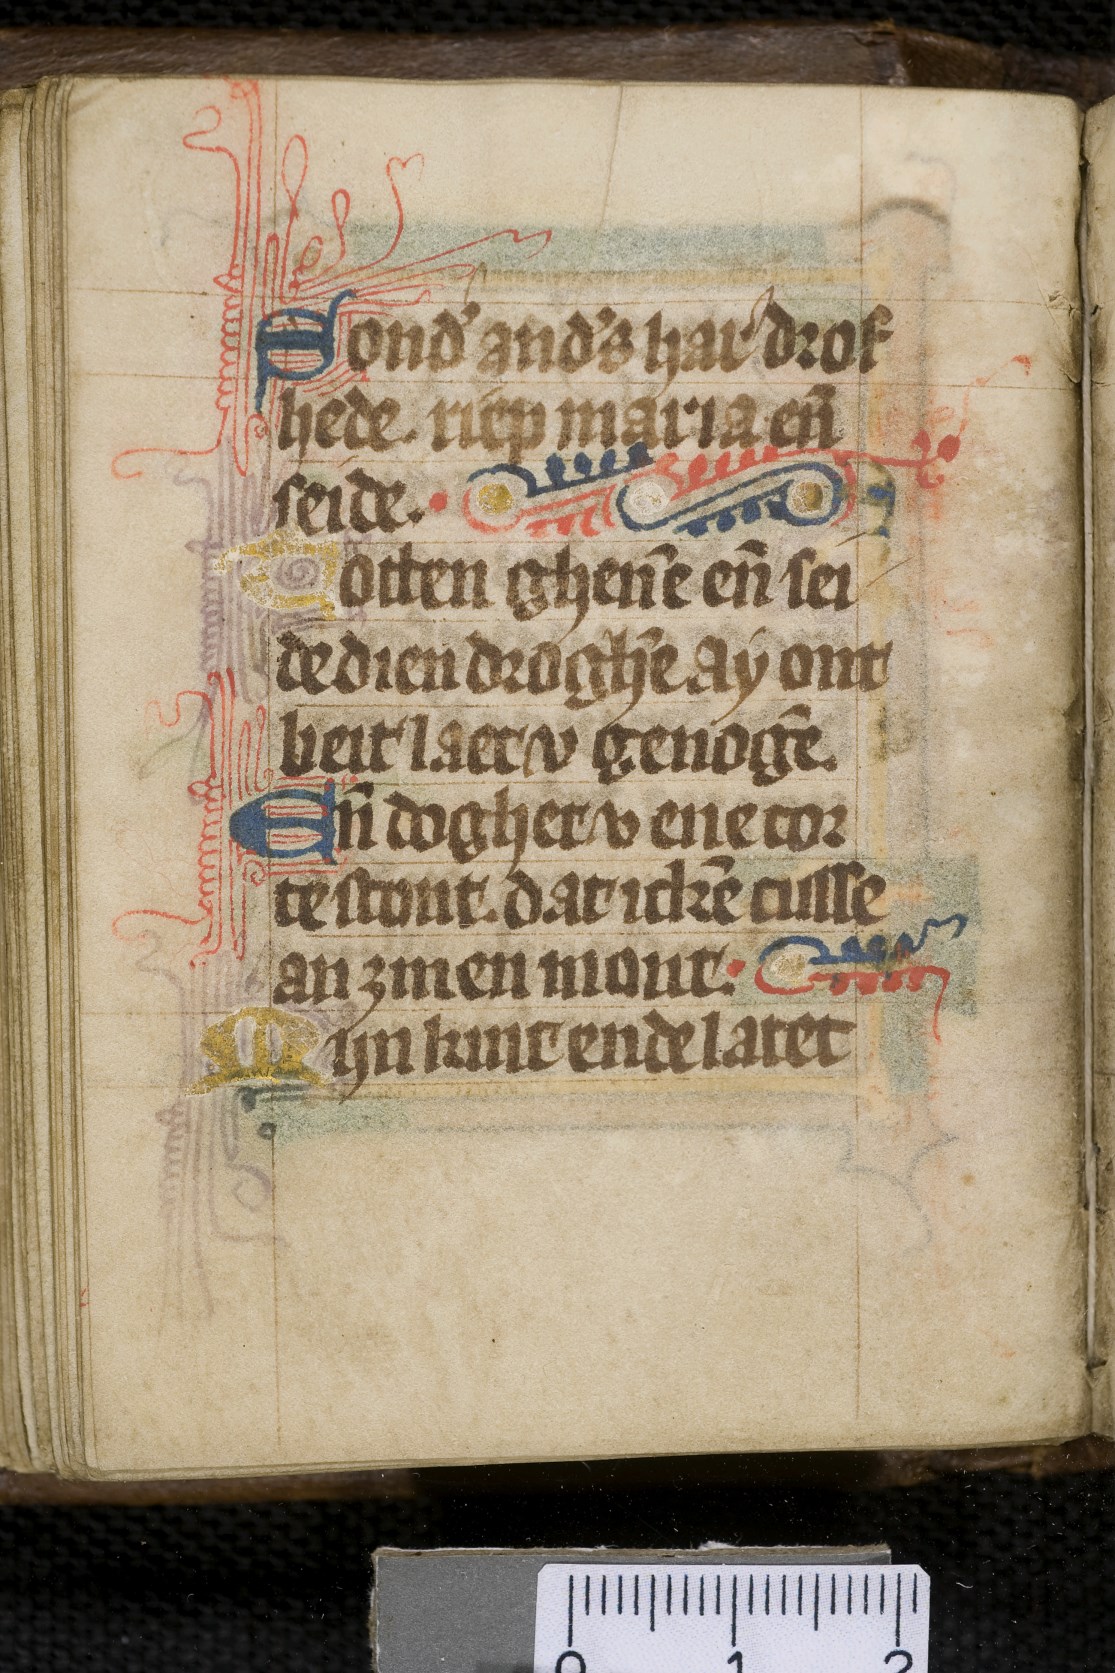 Dond' and's har' drof
hede. riep maria en̄
seide.
Totten ghen̄e en̄ sei
de dien drogh̄e. Aÿ ont
beit laet v genoḡe.
En̄ doghet v ene cor
te stont. dat ickē cusse
an zinen mont.
Mijn kint ende latet
0 1 2